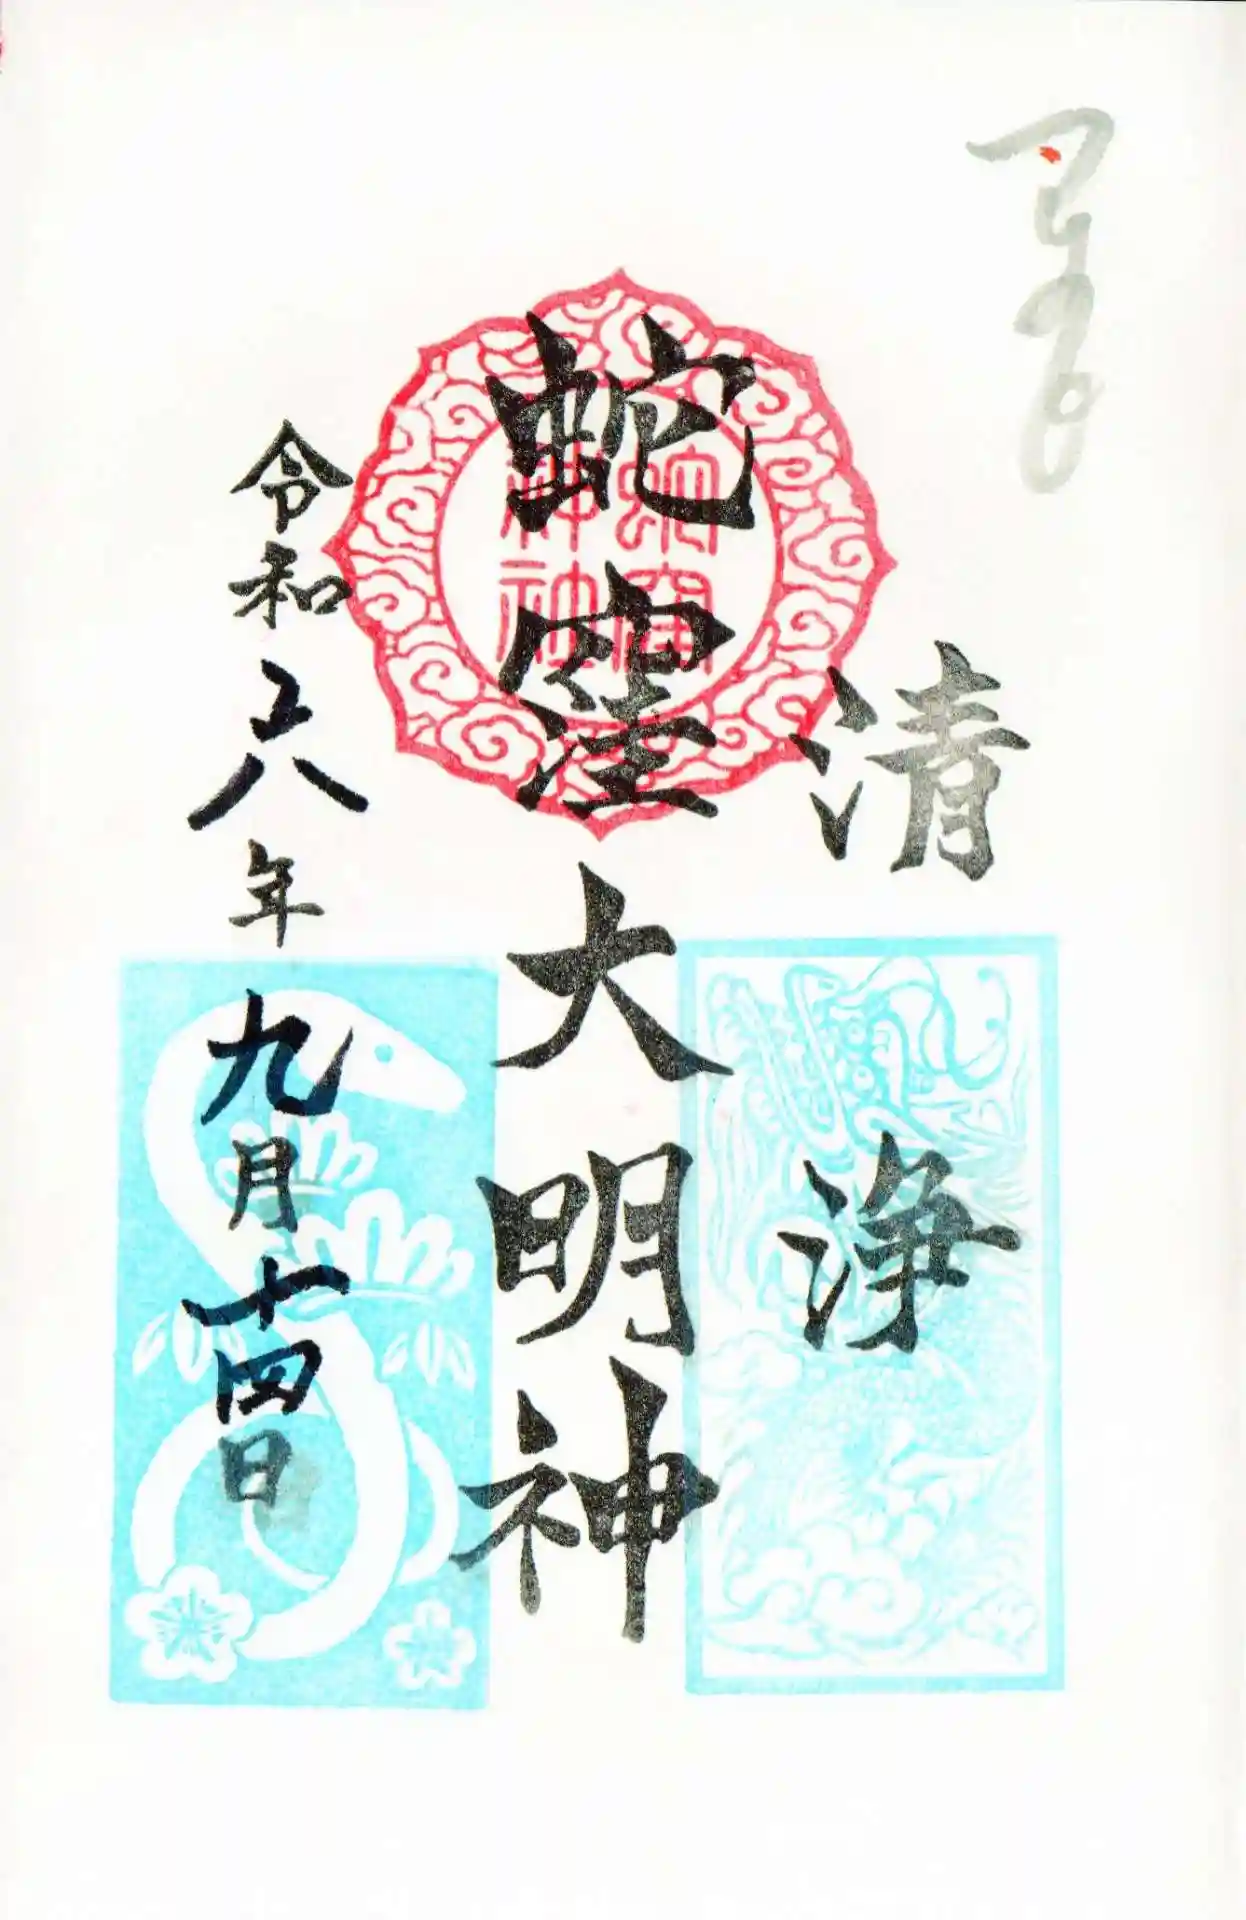 清浄
蛇窪大明神
令和六年九月十四日
蛇窪
神社